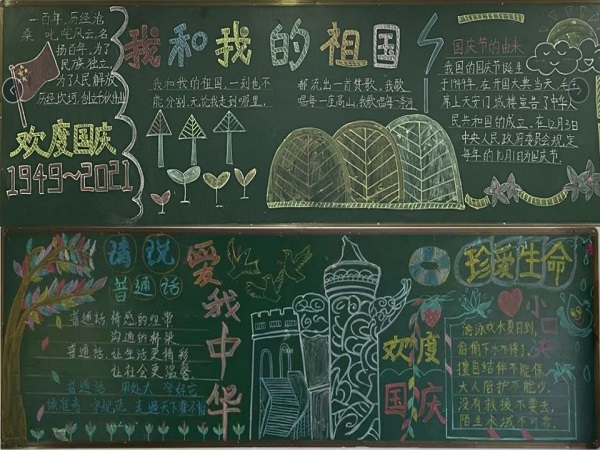 一百年,历经沧
桑,叱咤风云,名
扬百年,为了
民族独立,
为了人民解放
历经坎坷,创立
欢度国庆
1949~2021
我和我的祖国
我和我的祖国,一刻也不
能分割,无论我走到哪里,
都流出一首赞歌,我歌
唱每一座高山,我歌唱每一条河
国庆节的由来
我国的国庆节诞生
于1949年,在开国大典当天,毛主
席上天安门城楼宣告了中华人
民共和国的成立,在12月3日
中央人民政府委员会规定
每年的10月1日为国庆节.
请说
普通话
普通话,情感的纽带
沟通的桥梁
普通话,让生活更精彩
让社会更温馨
普通话
走遍天下
爱我中华
欢度
国庆
珍爱生命
小口
游泳戏水夏日到,
偷偷下水不得了,
擅自结伴不能保,
大人陪护不能少,
没有救援不要去,
陌生水域不可靠.